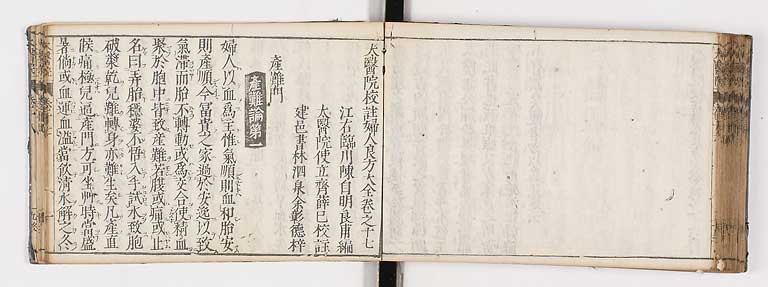 太醫院校註婦人良方大全卷之十七
江右臨川陳自明良甫編
太醫院使立齊薛巳校註
建邑書林泗泉余彰德梓
產難門
產難論第一
婦人以血為主惟氣順則血和胎安
則產順今富貴之家過於安逸以致
氣滯而胎不轉動或為交合使精血
聚於胞中皆致產難若腹或痛或止
名曰弄胎穩婆不悟入手試水致胞
破漿乾兒難轉身亦難生矣凡產直
候痛極兒逼產門方可坐草時當盛
暑倘或血運血溢當飲清水解之冬